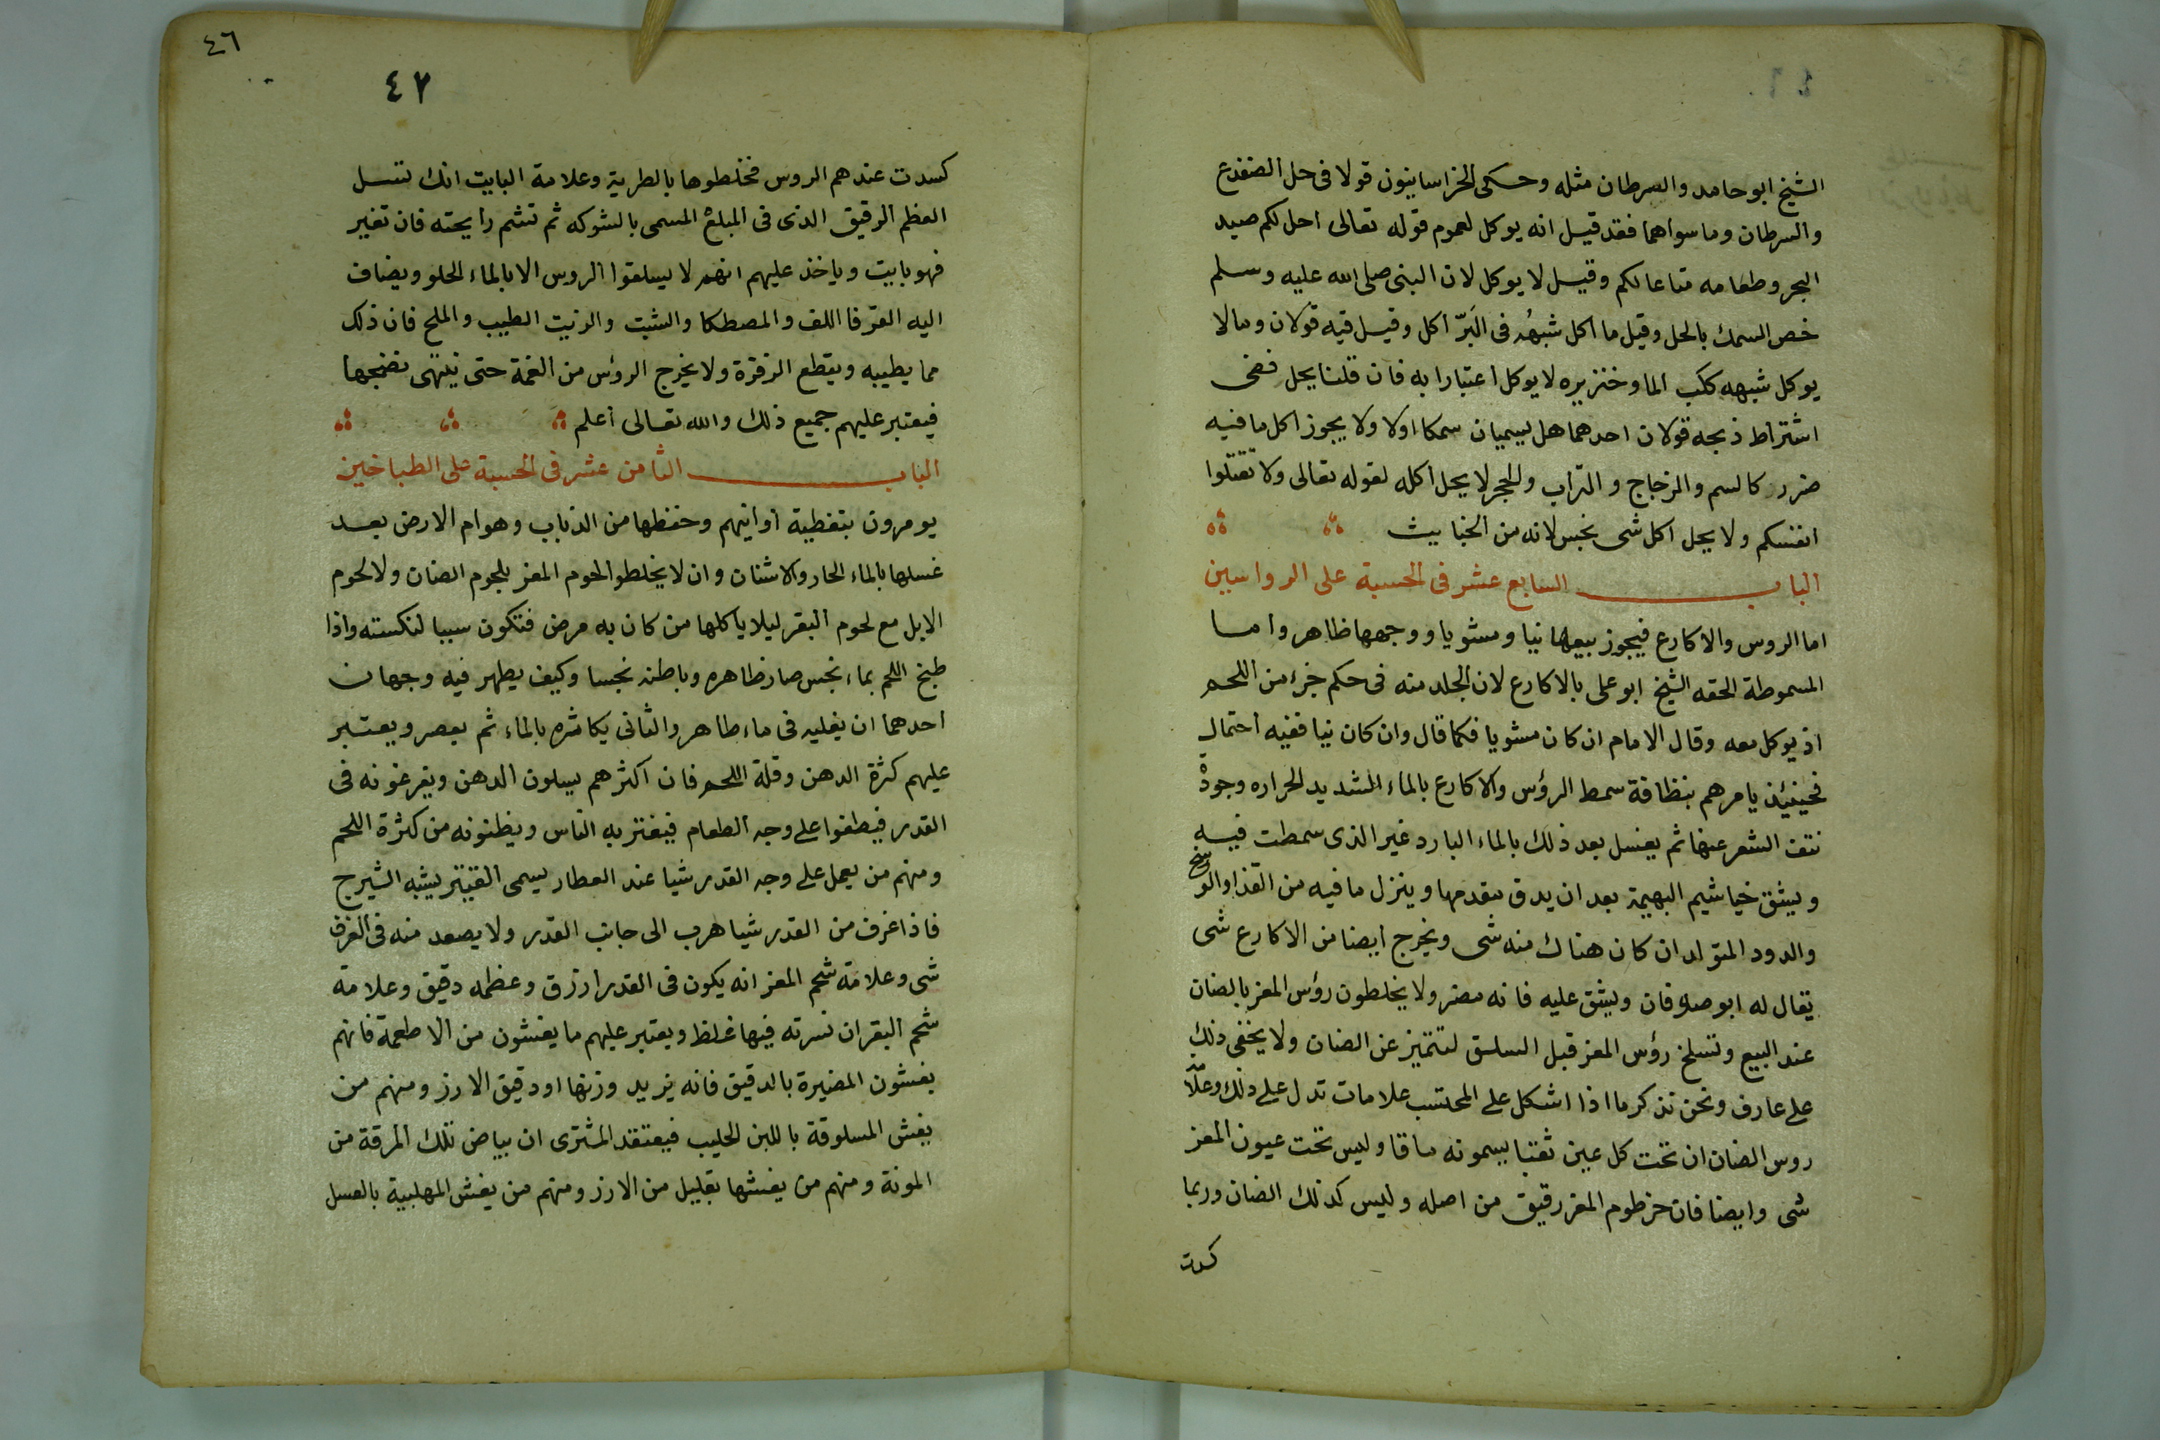 الشيخ ابو حامد والسرطان مثله وحكى الخراسانيون قولا فى حل الضفدع
والسرطان وما سواهما فقد قيل انه يوكل لعموم قوله تعالى احل لكم صيد
البحر وطعامه متاعا لكم وقيل لا يوكل لان النبى صلى الله عليه وسلم
خص السمك بالحل وقيل ما اكل شبهُه فى البَرّ اكل وقيل فيه قولان وما لا
يوكل شبهه ككلب الما وخنزيره لا يوكل اعتبارا به فان قلنا يحل ففى
اشتراط ذبحه قولان احدهما هل يسميان سمكا اولا ولا يجوز اكل ما فيه
ضرر كالسم والزجاج والتراب والحجر لا يحل اكله لقوله تعالى ولا تقتلوا
انفسكم ولا يحل اكل شى نجس لانه من الخبايث
الباب السابع عشر فى الحسبة على الرواسين
اما الروس والاكارع فيجوز بيعها نيا ومشويا ووجهها ظاهر واما
المسموطة الحقه الشيخ ابو على بالاكارع لان الجلد منه فى حكم جزء من اللحم
اذ يوكل معه وقال الامام ان كان مشويا فكما قال وان كان نيا ففيه احتمال
فحينئذ يامرهم بنظافة سمط الرؤس والاكارع بالماء الشديد الحراره وجودْ
نتف الشعر عنها ثم يغسل بعد ذلك بالماء البارد غير الذى سمطت فيه
ويشق خياشيم البهيمة بعد ان يدق مقدمها وينزل ما فيه من القذا والوسخ
والدود المتولد ان كان هناك منه شى ويخرج ايضا من الاكارع شى
يقال له ابو صلوفان ويشق عليه فانه مضر ولا يخلطون رؤس المعز بالضان
عند البيع وتسلخ رؤس المعز قبل السلق لتتميز عن الضان ولا يخفى ذلك
على عارف ونحن نذكر ما اذا اشكل على المحتسب علامات تدل على ذلك وعلا
روس الضان ان تحت كل عين ثقبا يسمونه ماقا وليس تحت عيون المعز
شى وايضا فان خرطوم المعز رقيق من اصله وليس كذلك الضان وربما
كدت
٤٦
٤٧
كسدت عندهم الروس فخلطوها بالطرية وعلامة البايت انك تنسل
العظم الرقيق الذى فى المبلع المسمى بالشوكه ثم تشم رايحته فان تغير
فهو بايت وياخذ عليهم انهم لا يسلقوا الروس الا بالماء الحلو ويضاف
اليه القرفا اللف والمصطكا والشبت والزيت الطيب والملح فان ذلك
مما يطيبه ويقطع الزفرة ولا يخرج الرؤس من الغمة حتى ينتهى نضجها
فيعتبر عليهم جميع ذلك والله تعالى اعلم
الباب الثامن عشر فى الحسبة على الطباخين
يومرون بتغطية أوانيهم وحفظها من الذباب وهوام الارض بعد
غسلها بالماء الحار والاشنان وان لا يخلطوا لحوم المعز بلحوم الضان ولا لحوم
الابل مع لحوم البقر ليلا ياكلها من كان به مرض فتكون سببا لنكسته واذا
طبخ اللحم بماء نجس صار ظاهره وباطنه نجسا وكيف يطهر فيه وجهان
احدهما ان يغليه فى ماء طاهر والثانى يكاثره بالماء ثم يعصر ويعتبر
عليهم كثرة الدهن وقلة اللحم فان اكثرهم يسلون الدهن ويفرغونه فى
القدر فيطفوا على وجه الطعام فيغتر به الناس ويظنونه من كثرة اللحم
ومنهم من يعمل على وجه القدر شيا عند العطار يسمى القنبر يشبه الشيرج
فاذا غرف من القدر شيا هرب الى جانب القدر ولا يصعد منه فى الغرف
شى وعلامة شحم المعز انه يكون فى القدر ازرق وعظمه دقيق وعلامة
شحم البقر ان نسرته فيها غلظ ويعتبر عليهم ما يغشون من الاطعمة فانهم
يغشون المضيرة بالدقيق فانه يزيد وزنها او دقيق الارز ومنهم من
يغش المسلوقة باللبن الحليب فيعتقد المشترى ان بياض تلك المرقة من
المونة ومنهم من يغشها بقليل من الارز ومنهم من يغش المهلبية بالعسل